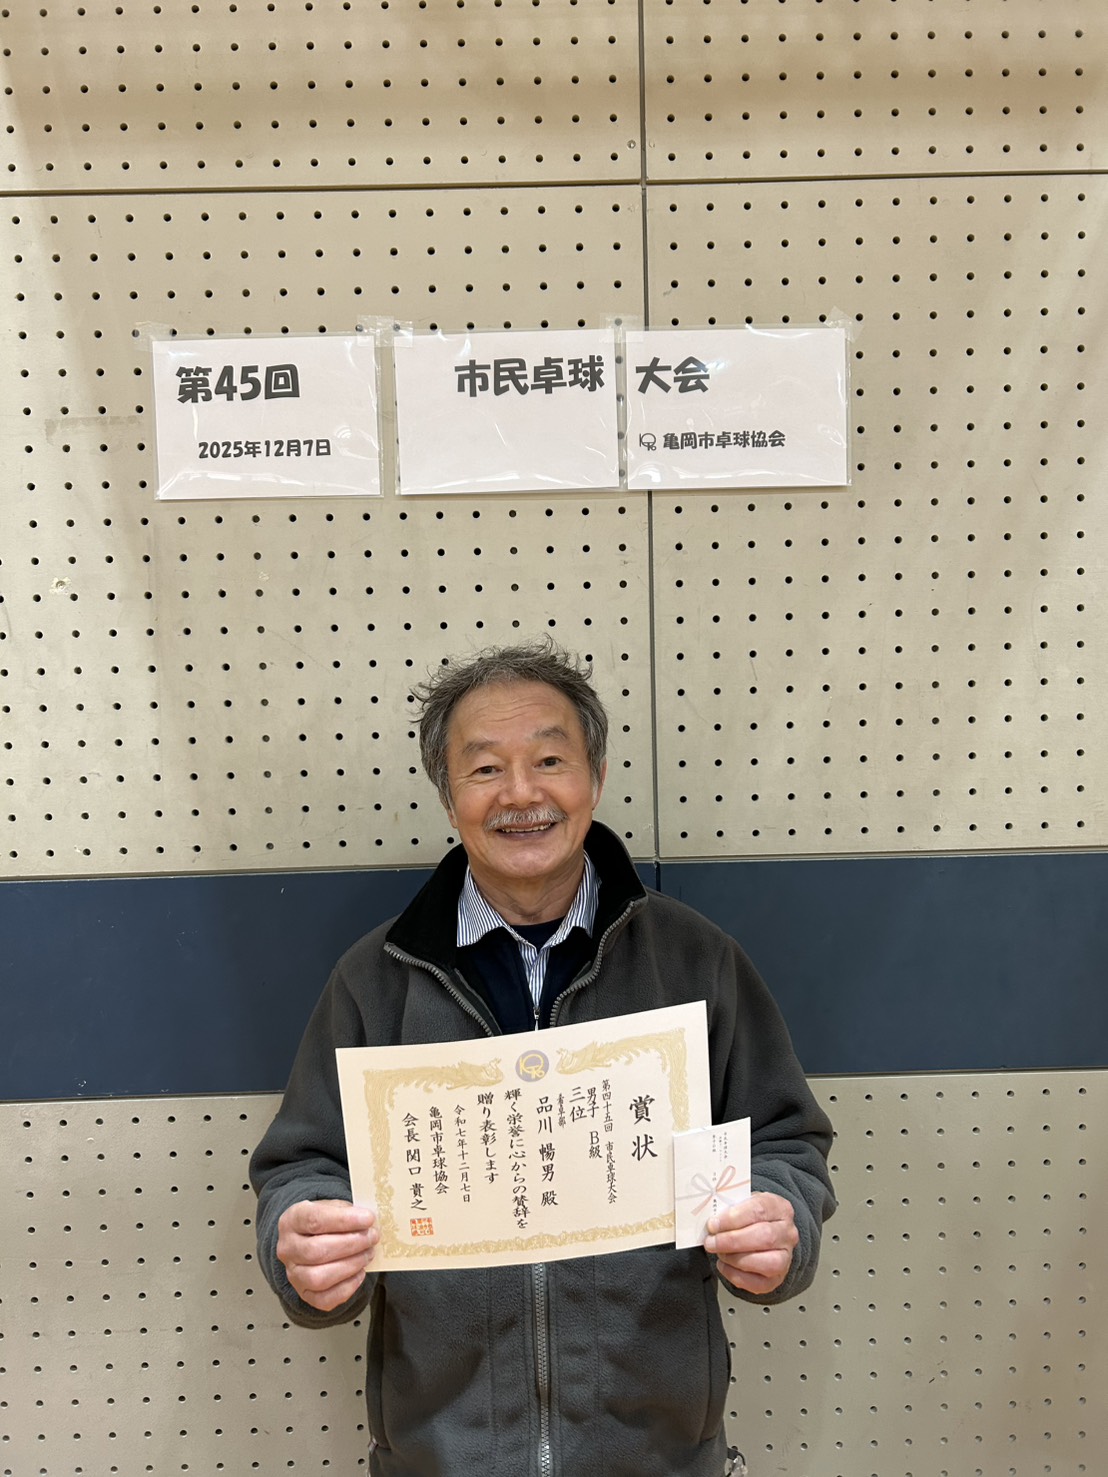 第45回
2025年12月7日
市民卓球
大会
亀岡市卓球協会
賞状
第四十五回 市民卓球大会
男子 B級
三位
品川 暢男 殿
輝く栄誉に心からの賛辞を
贈り表彰します
令和七年十二月七日
亀岡市卓球協会
会長 関口 貴之